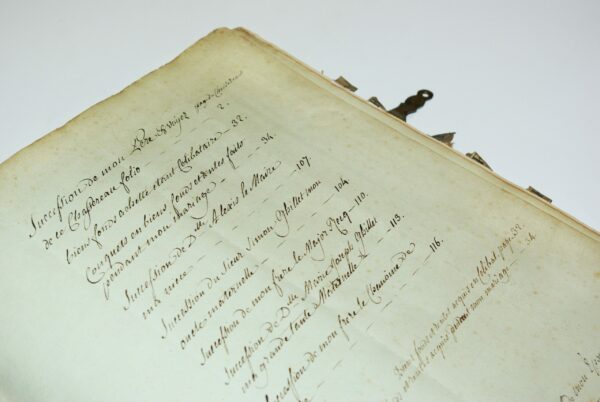 Succession de mon Père
de la Chapereau folio - - - - 2.
biens fonds achettés étant Célibataire - 32.
Conquets en biens fonds et rentes faits
pendant mon mariage - - - - 34.
Succession de D.lle Alexis le Maire
ma niece - - - - 107.
Succession du Sieur Simon Ghillet mon
oncle maternelle - - - - 104
Succession de mon frère le Major - 110.
Succession de D.lle Marie Joseph Ghillet
ma grande tante Maternelle - - 113.
Succession de mon frère le - - 116.
Biens fonds et rentes acquis en Célibat page 32.
et acquis pendant mon mariage - 34